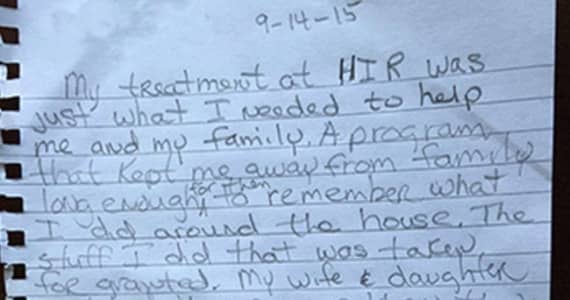 9-14-15
My treatment at HIR was
just what I needed to help
me and my family. A program
that kept me away from family
long enough for them to remember what
I did around the house. The
stuff I did that was taken
for granted. My wife & daughter